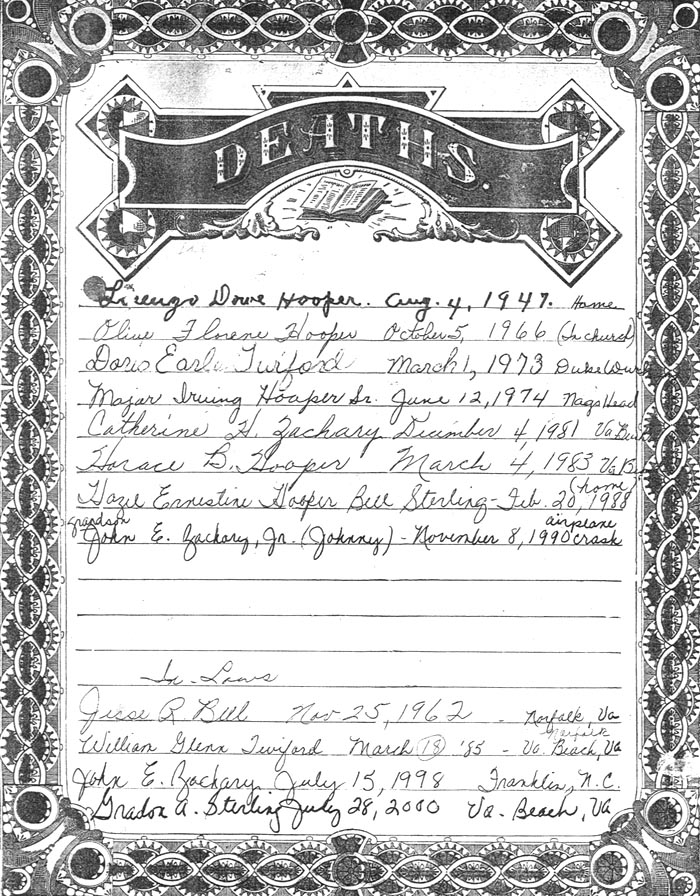 DEATHS.
Dowe Hooper. Aug. 4, 1947. Home
Olive Florene Hooper October 5, 1966 (In church)
Doris Earle Twiford March 1, 1973 Duke
Major Irving Hooper Sr. June 12, 1974 Nags Head
Catherine H. Zachary December 4, 1981 Va
Horace B. Hooper March 4, 1983 Va
(home)
Hazel Ernestine Hooper Bell Sterling - Feb. 20, 1988
grandson airplane
John E. Zachary, Jr. (Johnny) - November 8, 1990 crash
In-Laws
Jesse R Bell Nov 25, 1962 - Norfolk, Va
Norfolk
William Glenn Twiford March 18 '85 - Va. Beach, Va
John E. Zachary July 15, 1998 Franklin, N.C.
Gradon A. Sterling July 28, 2000 Va. Beach, Va